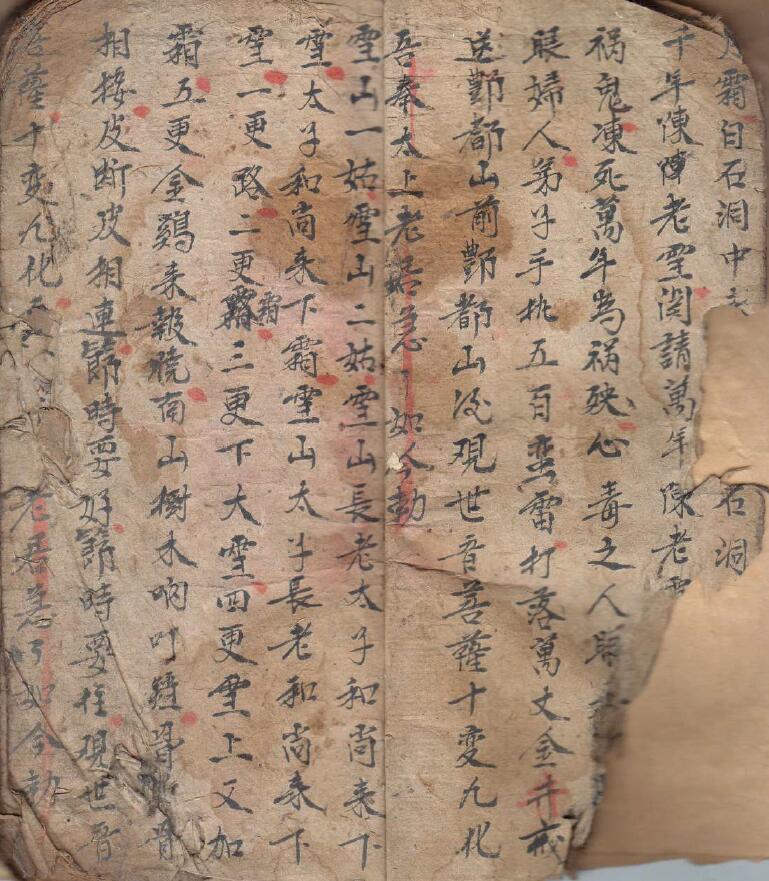 霜白石洞中 石洞
千年陳 老雪閔請萬年陳老雪
禍鬼凍死萬年為禍殃心毒之人眼
眼婦人弟子手批五百蛮雷打落萬丈金井戒
送酆都山前酆都山後現世音菩薩十变九化
吾奉太上老君急〻如令勅
雪山一姑雪山二姑雪山長老太子和尚来下
雪太子和尚来下霜雪山太子長老和尚来下
雪一更路二更霜三更下大雪四更雪上又加
霜五更金鷄来報曉南山樹木响叮 骨 骨
相接皮断皮相連節時要好節時要住現世音
菩薩十变九化 老君急〻如令勅